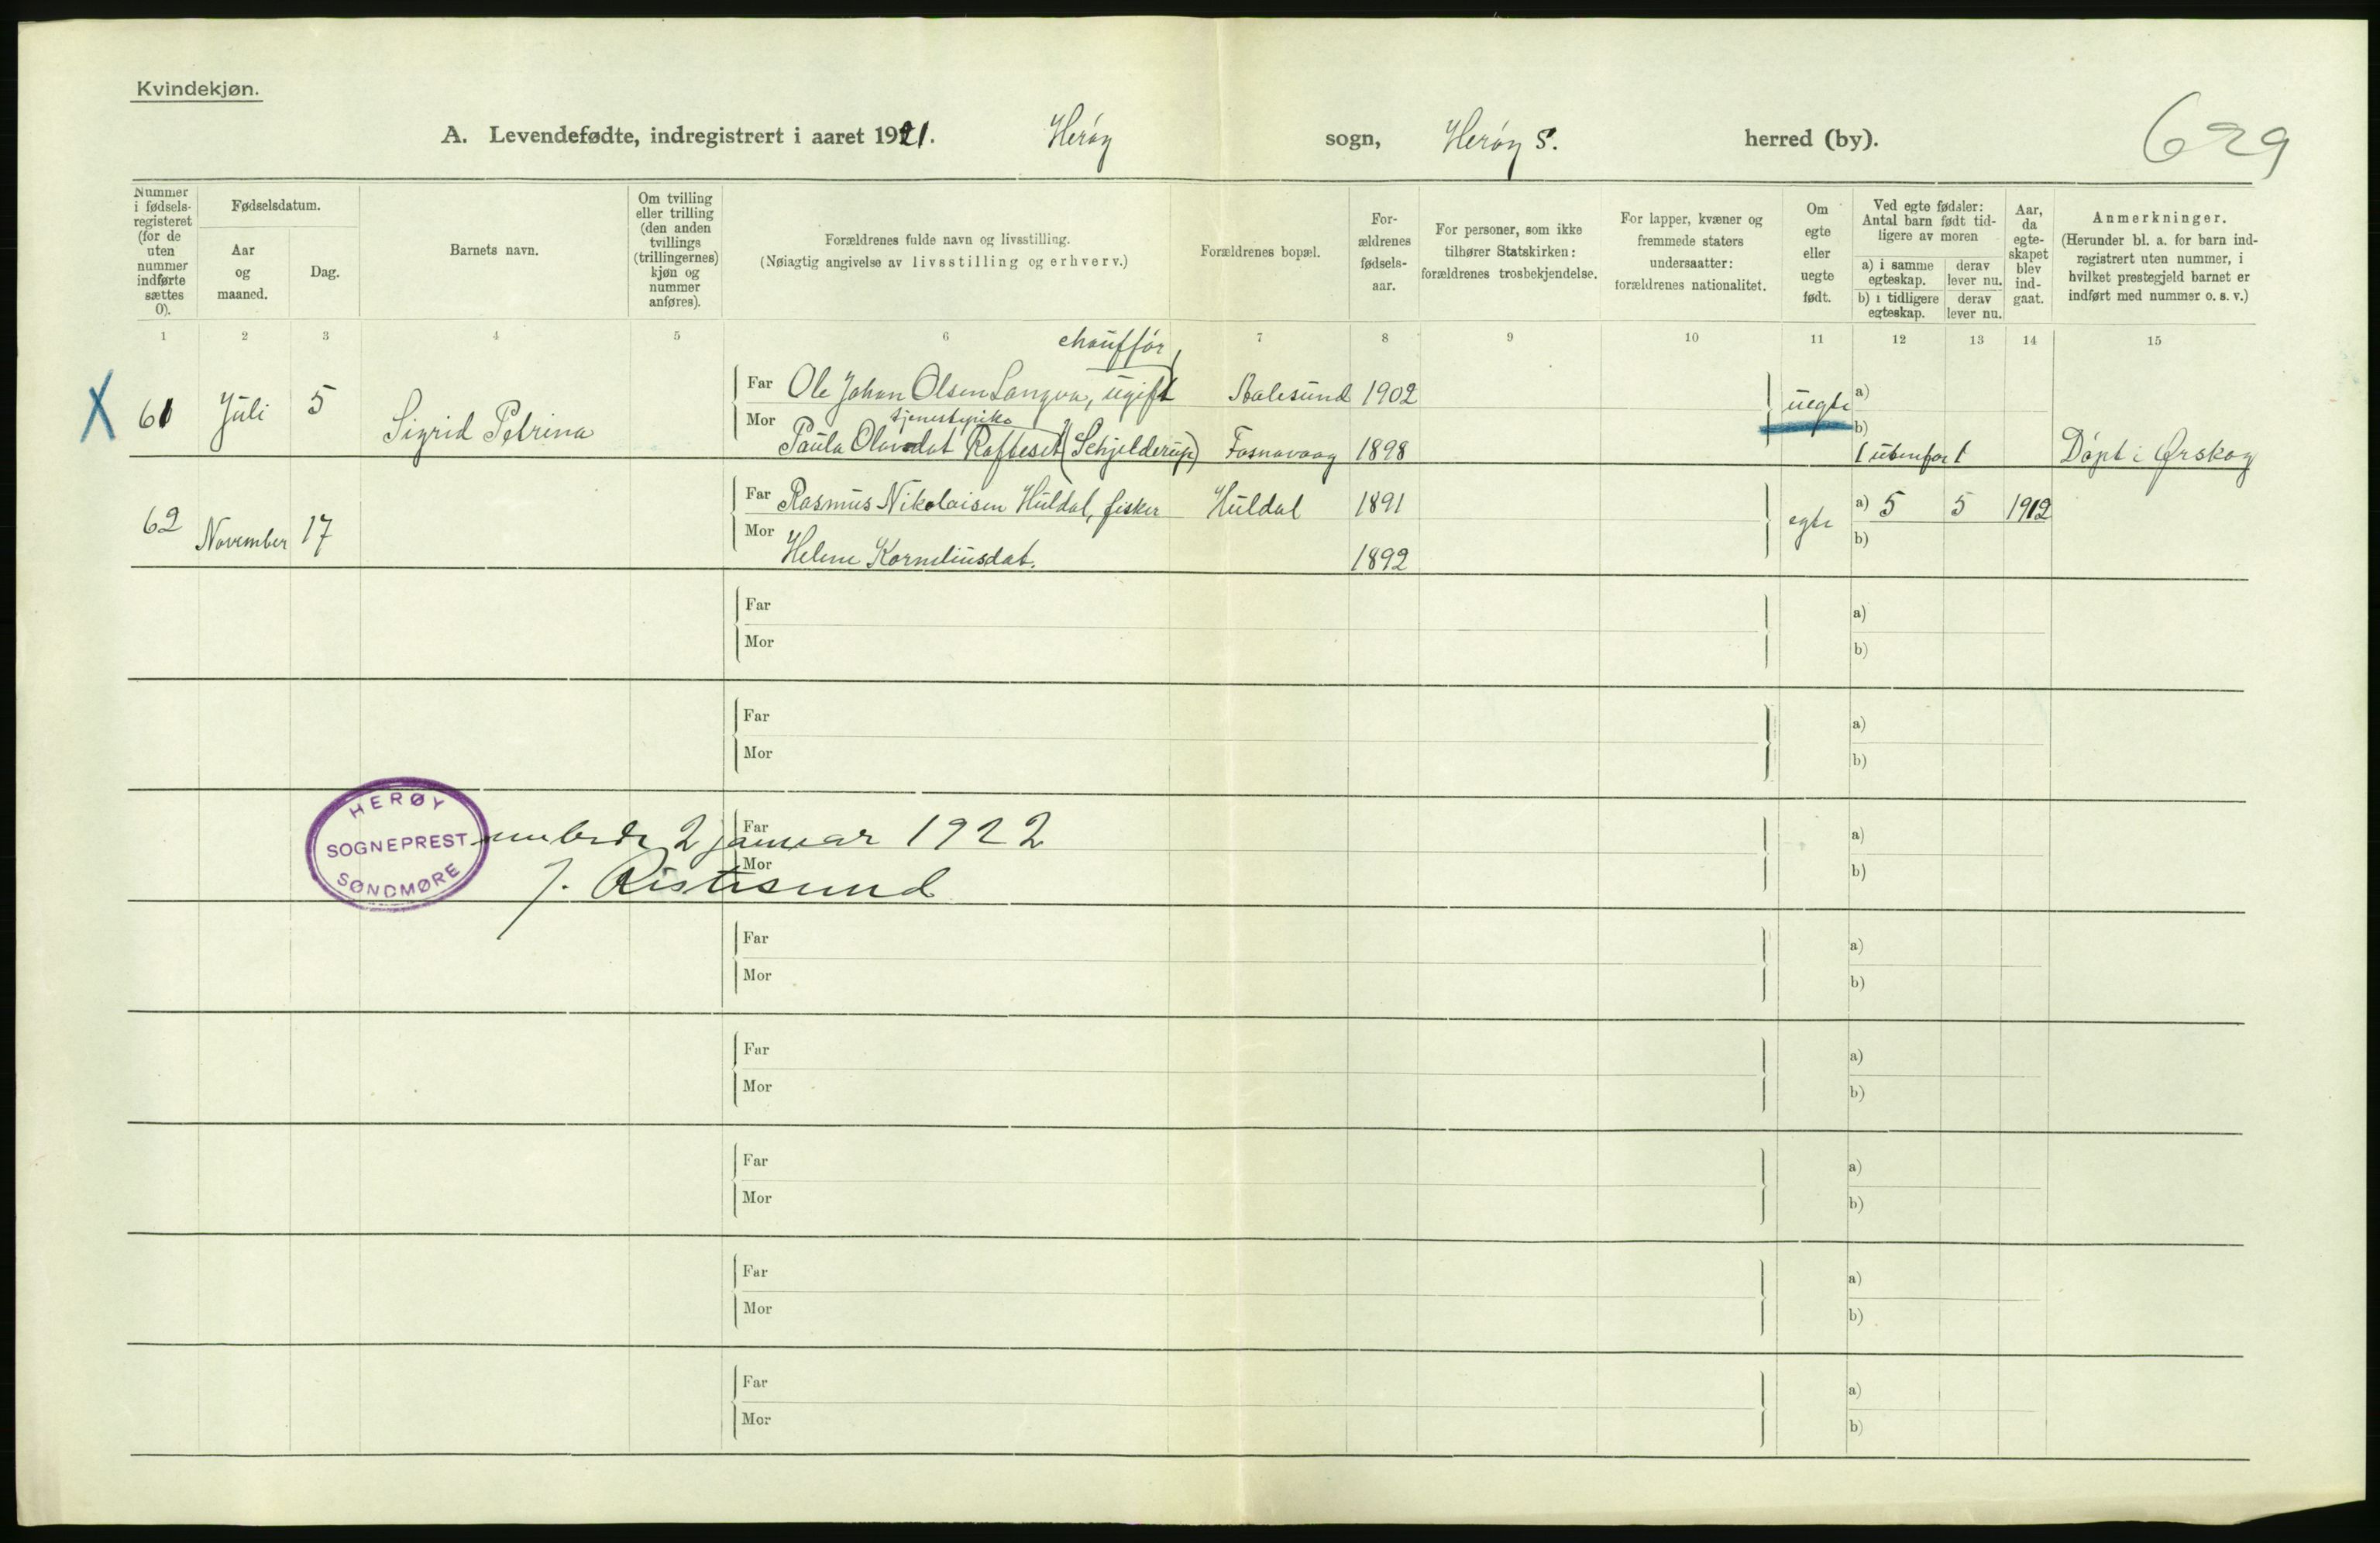 Kvindekjøn.
A. Levendefødte, indregistrert i aaret 1921. Herøy sogn, Herøy S. herred (by). 629
Nummer i fødselsregisteret (for de uten nummer indførte sættes 0).
Fødselsdatum.
Aar og maaned.
Dag.
Barnets navn.
Om tvilling eller trilling (den anden tvillings (trillingernes) kjøn og nummer anføres).
Forældrenes fulde navn og livsstilling.
(Nøiagtig angivelse av livsstilling og erhverv.)
Forældrenes bopæl.
Forældrenes fødselsaar.
For personer, som ikke tilhører Statskirken: forældrenes trosbekjendelse.
For lapper, kvæner og fremmede staters undersaatter: forældrenes nationalitet.
Om egte eller uegte født.
Ved egte fødsler: Antal barn født tidligere av moren
a) i samme egteskap. derav lever nu.
b) i tidligere egteskap. derav lever nu.
Aar, da egteskapet blev indgaat.
Anmerkninger.
(Herunder bl. a. for barn indregistrert uten nummer, i hvilket prestegjeld barnet er indført med nummer o. s. v.)
1 2 3 4 5 6 7 8 9 10 11 12 13 14 15
chauffør
X 61 Juli 5 Sigrid Petrina
Far Ole Johan Olsen Langva, ugift Aalesund 1902 uegte a)
tjenestepike
Mor Paula Olavsdat Rafteset (Schjelderup) Fosnavaag 1898 b)
1 utenfor 1 Døpt i Ørskog
62 November 17
Far Rasmus Nikolaisen Huldal, fisker Huldal 1891 egte a) 5 5 1912
Mor Helene Korneliusdat. 1892 b)
Far a)
Mor b)
Far a)
Mor b)
HERØY
SOGNEPREST
SØNDMØRE
Far a)
2 januar 1922
Mor b)
J.
Far a)
Mor b)
Far a)
Mor b)
Far a)
Mor b)
Far a)
Mor b)
Far a)
Mor b)